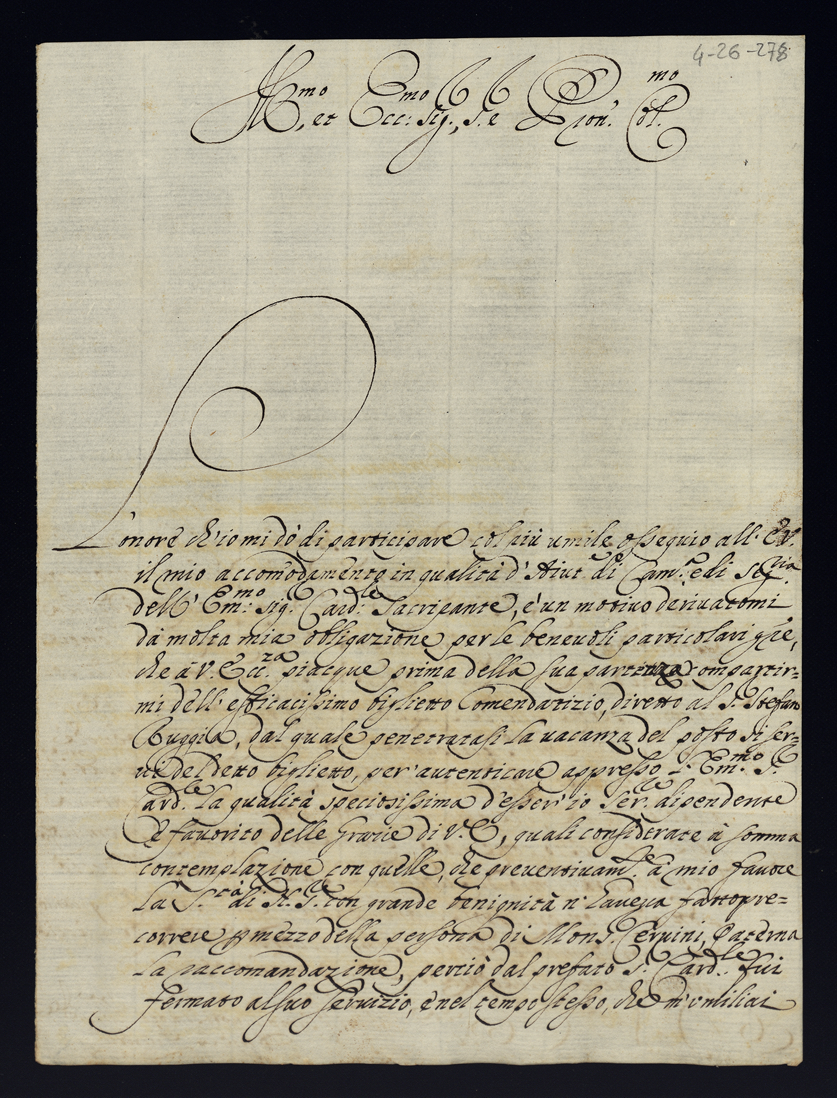 4-26-278
Ill.mo, et Ecc.mo Sig.r, S.re e P.ron Col.mo
L'onore ch'io mi dò di participare col più umile ossequio all' E.V.
il mio accom̃odamento in qualità d'Aiut.e di Cam.ra e di Seg.ria
dell' Em.mo Sig.r Card.le Sacripante, è un motivo derivatomi
dà molta mia obligazione per le benevoli particolari gr̃ie,
che à V. Ecc.za piacque prima della sua partenza compartir=
mi dell' efficacissimo biglietto Comendatizio, diretto al S.r Stefano
Buggia, dal quale penetratasi la vacanza del posto si ser=
vì del detto biglietto, per autenticare appresso l' Em.mo S.r
Card.le la qualità speciosissima d'esser' io Ser.re dipendente
è favorito delle Grazie di V.E, quali considerate à somma
contemplazione con quelle, che preventivam.te à mio favore
la S.tà di N.S.re con grande benignità n' haveva fatto pre=
correre p mezzo della persona di Mons.r Cervini, Paterna
la raccomandazione, perciò dal prefato S.r Card.le fui
fermato al suo servizio, è nel tempo stesso, che m'umiliai